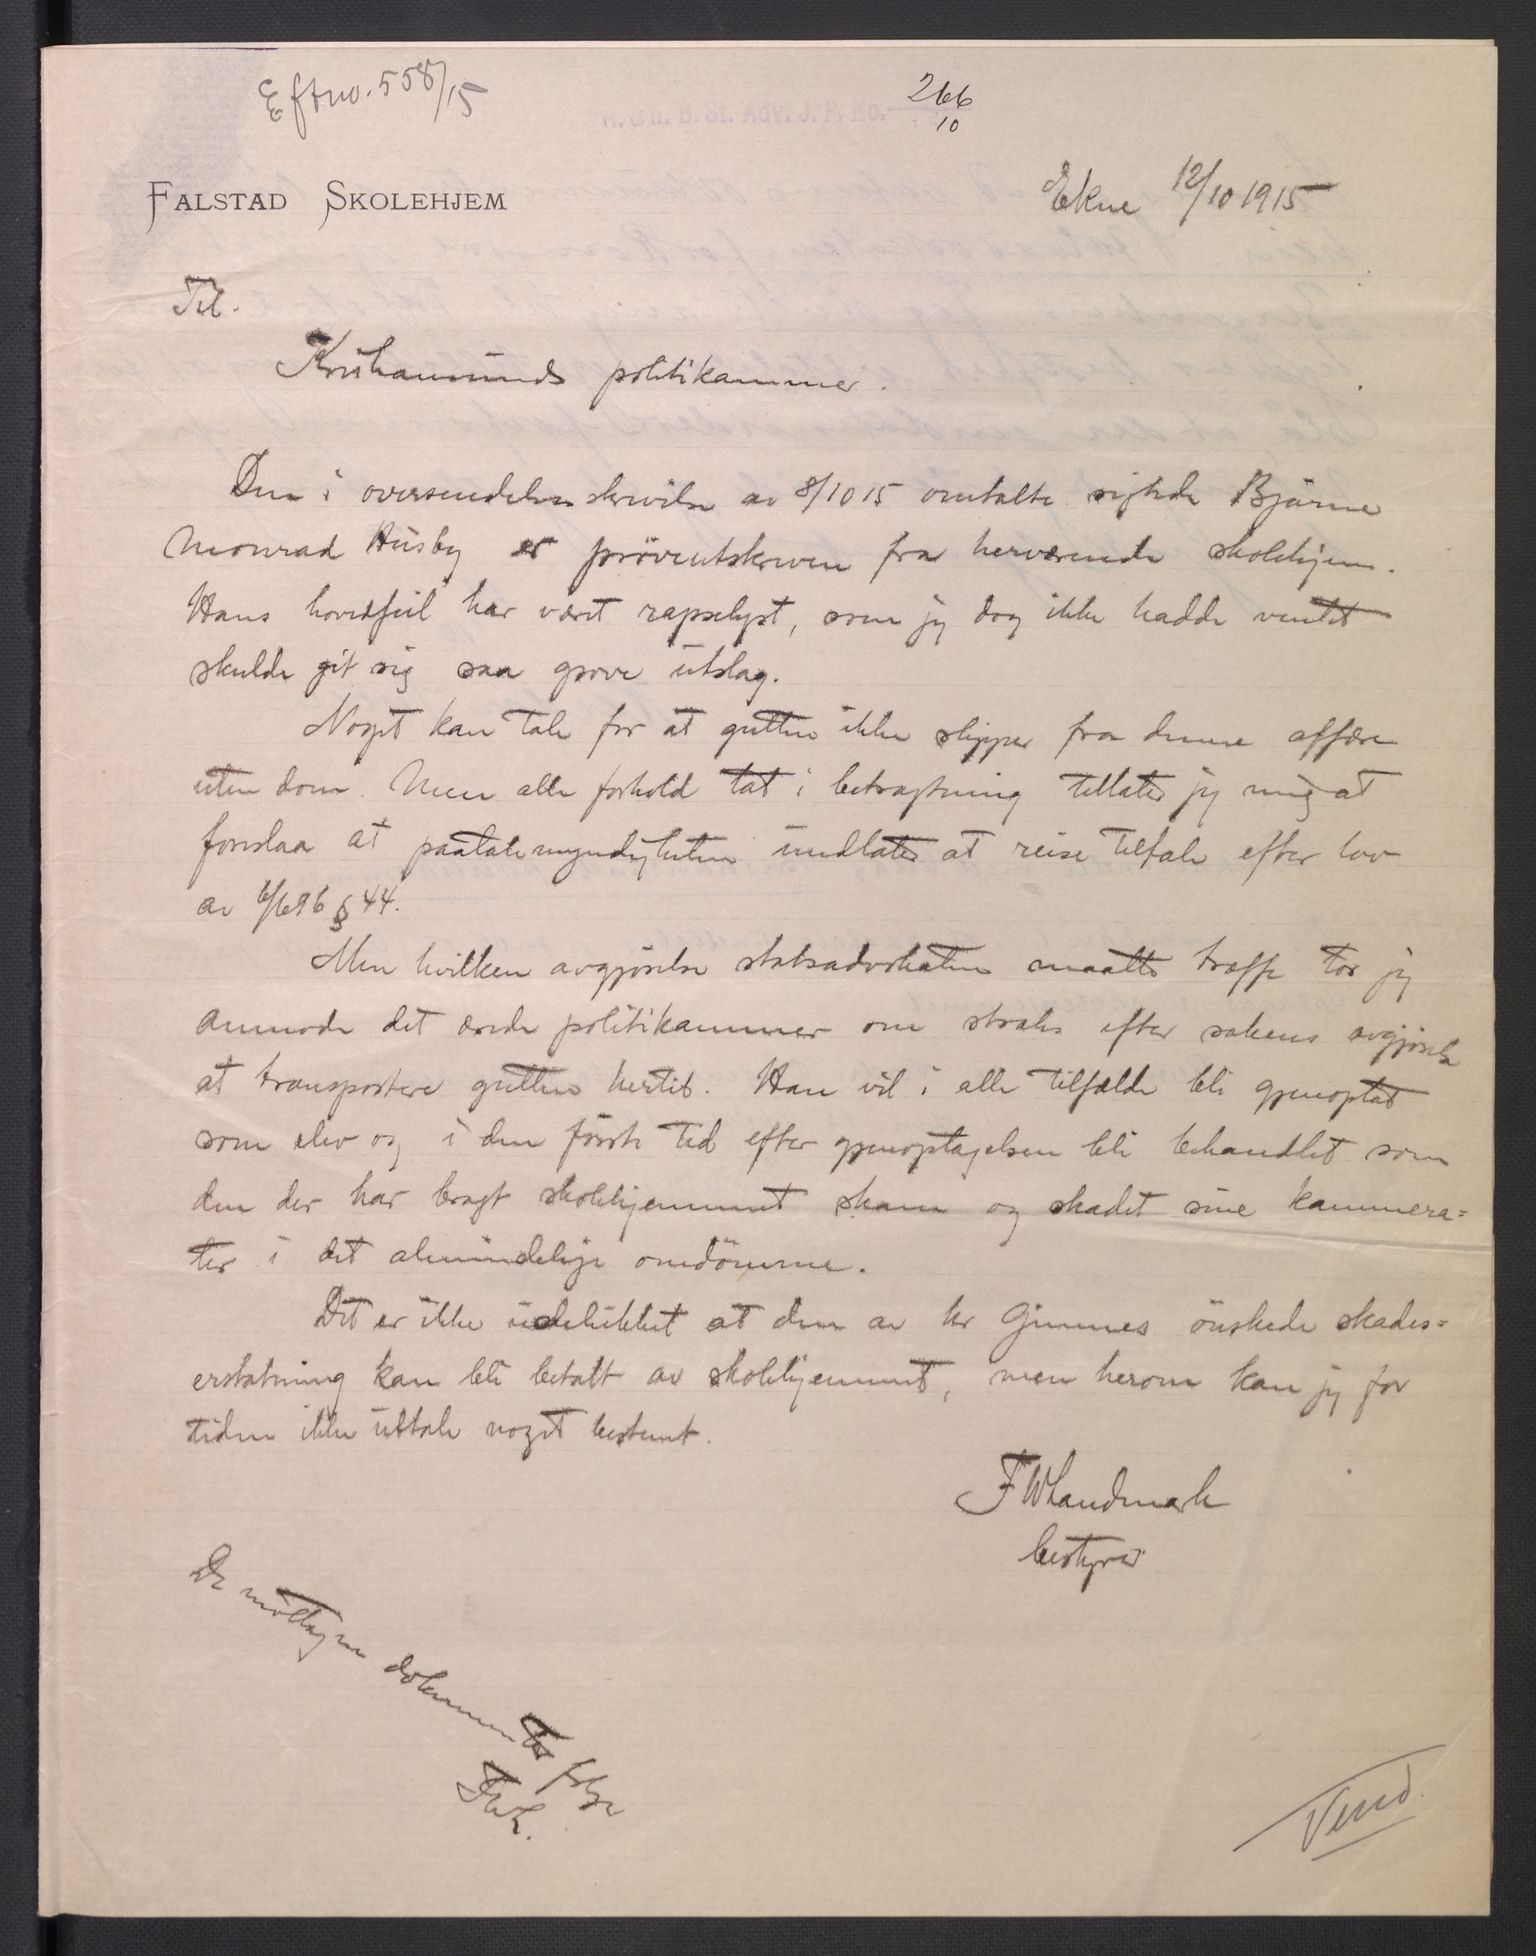 Eftno. 558/15
266
10
St. Adv. J. P. No.
FALSTAD SKOLEHJEM
Ekne 12/10 1915
Til.
Kristiansunds politikammer.
Den i oversendelsesskrivelse av 8/10 15 omtalte sigtede Bjarne
Monrad Husby er prøveutskreven fra herværende skolehjem.
Hans hovedfeil har været rapselyst, som jeg dog ikke hadde ventet
skulde git sig saa grove utslag.
Noget kan tale for at gutten ikke slipper fra denne affære
uten dom. Men alle forhold tat i betragtning tillater jeg mig at
foreslaa at paatalemyndigheten undlater at reise tiltale efter lov
av 6/6 96 § 44.
Men hvilken avgjørelse statsadvokaten maatte træffe tør jeg
anmode det ærede politikammer om straks efter sakens avgjørelse
at transportere gutten hertil. Han vil i alle tilfælde bli gjenoptat
som elev og i den første tid efter gjenoptagelsen bli behandlet som
den der har bragt skolehjemmet skam og skadet sine kammera=
ter i det almindelige omdømme.
Det er ikke udelukket at den av hr Gimnes ønskede skades=
erstatning kan bli betalt av skolehjemmet, men herom kan jeg for
tiden ikke uttale noget bestemt.
F W Landmark
bestyrer
De mottagne dokumenter følge
FWL.
Vend.